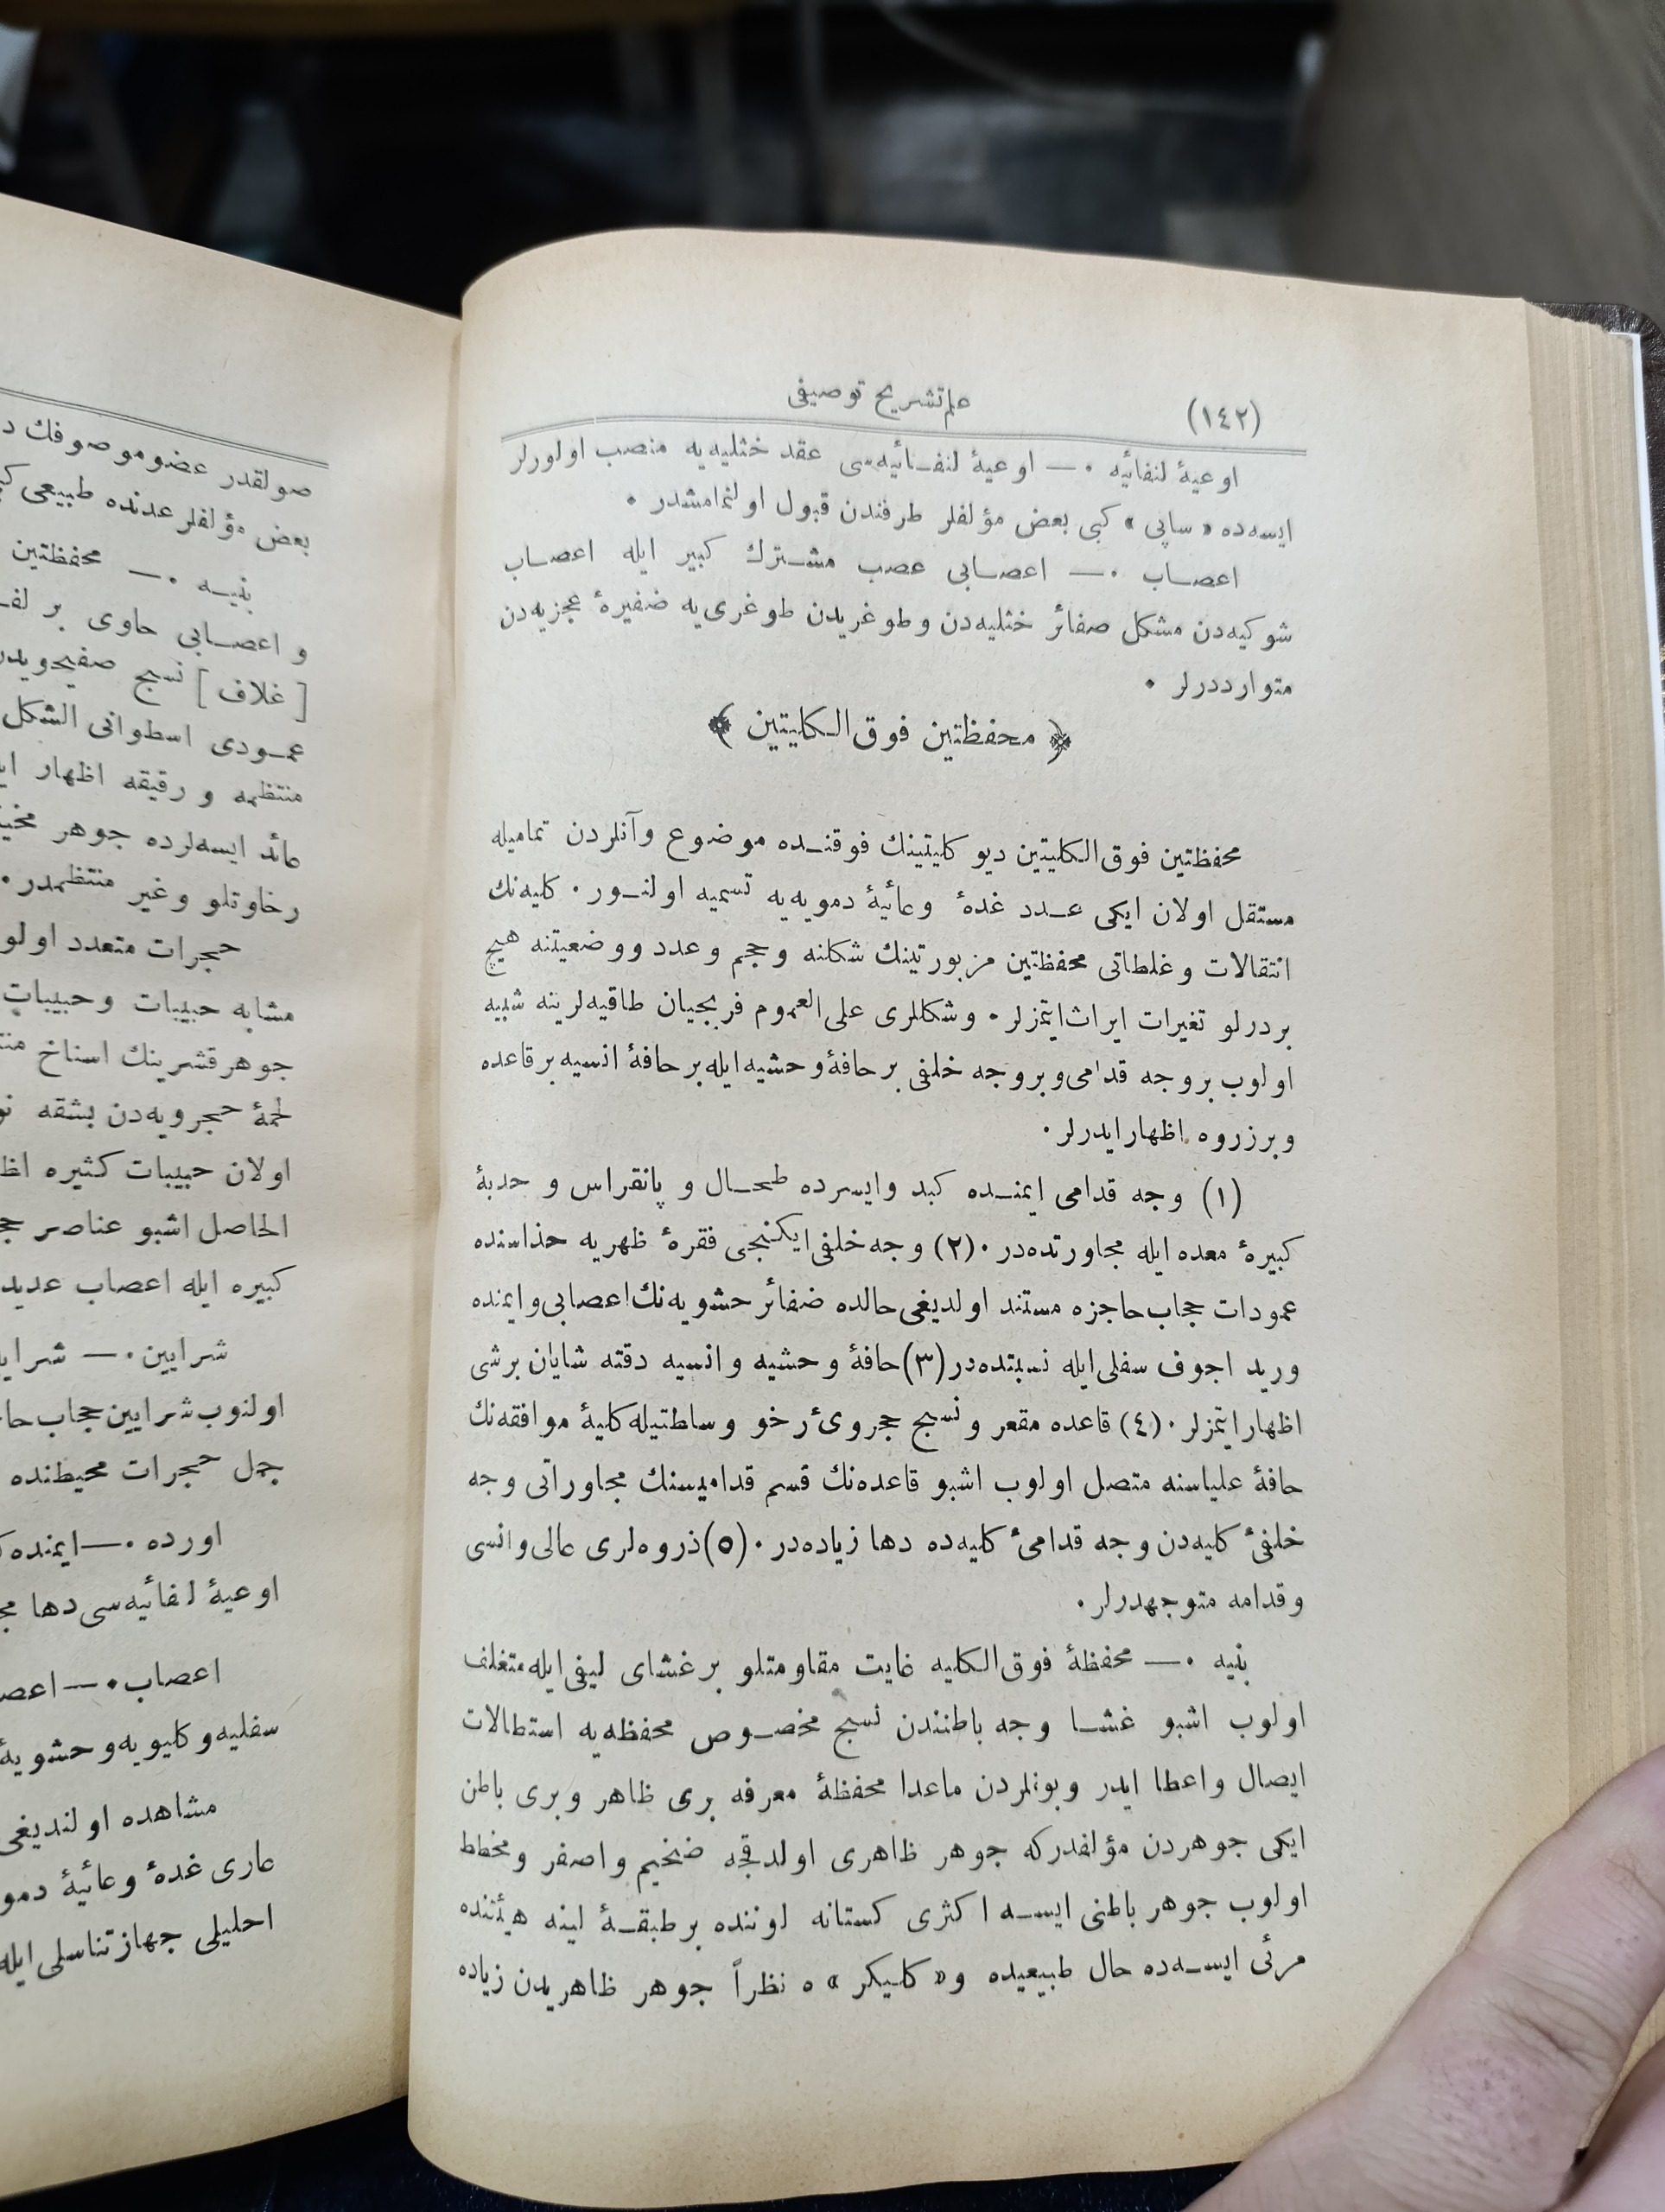 (١٤٢)
علم تشریح توصیفی
اوعیهٔ لنفائیه ۰ — اوعیهٔ لنفـائیه‌سی عقد خثلیه‌یه منصب اولورلر
ایسه‌ده « ساپی » کبی بعض مؤلفلر طرفندن قبول اولنمامشدر ۰
اعصـاب ۰ — اعصـابی عصب مشـترك کبیر ایله اعصـاب
شوکیه‌دن مشکل صفائر خثلیه‌دن وطوغریدن طوغری‌یه ضفیرهٔ عجزیه‌دن
متوارددرلر ۰
﴿ محفظتین فوق‌الـکلیتین ﴾
محفظتین فوق‌الـکلیتین دیو کلیتینك فوقنـده موضوع وآنلردن تمامیله
مستقل اولان ایکی عـدد غدهٔ وعائیهٔ دمویه‌یه تسمیه اولنـور ۰ کلیه‌نك
انتقالات وغلطاتی محفظتین مزبورتینك شکلنه وحجم وعدد ووضعیتنه هیچ
بردرلو تغیرات ایراث‌ایتمزلر ۰ وشکللری علی‌العموم فریجیان طاقیه‌لرینه شبیه
اولوب بروجه قدامی‌وبروجه خلفی برحافهٔ‌وحشیه‌ایله‌برحافهٔ انسیه برقاعده
وبرزروه اظهارایدرلر ۰
(١) وجه قدامی ایمنـده کبد وایسرده طحـال و پانقراس و حدبهٔ
کبیرهٔ معده ایله مجاورتده‌در ۰ (٢) وجه خلفی‌ایکنجی فقرهٔ ظهریه حذاسنده
عمودات حجاب‌حاجزه مستند اولدیغی‌حالده ضفائر حشویه‌نك‌اعصابی‌وایمنده
ورید اجوف سفلی‌ایله نسبتده‌در (٣) حافهٔ وحشیه وانسیه دقته شایان برشی
اظهارایتمزلر ۰ (٤) قاعده مقعر ونسیج حجروئ رخو وساطتیله‌کلیهٔ موافقه‌نك
حافهٔ علیاسنه متصل اولوب اشبو قاعده‌نك قسم قدامیسنك مجاوراتی وجه
خلفیٔ کلیه‌دن وجه قدامیٔ کلیه‌ده دها زیاده‌در ۰ (٥) ذروه‌لری عالی‌وانسی
وقدامه متوجهدرلر ۰
بنیه ۰ — محفظهٔ فوق‌الـکلیه غایت مقاومتلو برغشای لیفی‌ایله‌متغلف
اولوب اشبو غشـا وجه باطنندن نسیج مخصـوص محفظه‌یه استطالات
ایصال واعطا ایدر وبونلردن ماعدا محفظهٔ معرفه بری ظاهر وبری باطن
ایکی جوهردن مؤلفدرکه جوهر ظاهری اولدقجه ضخیم واصفر ومخطط
اولوب جوهر باطنی ایسـه اکثری کستانه لوننده برطبقـهٔ لینه هیئتنده
مرئی ایسـه‌ده حال طبیعیده و« کلیکر » ه نظراً جوهر ظاهریدن زیاده
صولقدر عضوموصوفك
بعض مؤلفلر عدنده طبیعی
بنیـه ۰ — محفظتین
و اعصـابی حاوی بر
[ غلاف ] نسیج صفیحویدر
عمـودی اسطوانی الشکل
منتظمه و رقیقه اظهار
عائد ایسه‌لرده جوهر
رخاوتلو وغیر منتظمدر ۰
حجرات متعدد
مشابه حبیبات وحبیبات
جوهرقشرینك اسناخ
لحمهٔ حجرویه‌دن بشقه
اولان حبیبات کثیره
الحاصل اشبو عناصر
کبیره ایله اعصاب عدید
شرایین ۰ —
اولنوب شرایین حجاب
جمل حجرات محیطنده
اورده ۰ — ایمنده
اوعیهٔ لنفائیه‌سی دها
اعصاب ۰ —
سفلیه‌وکلیویه‌وحشویهٔ
مشاهده اولندیغی
عاری غدهٔ وعائیهٔ
احلیلی جهازتناسلی‌ایله